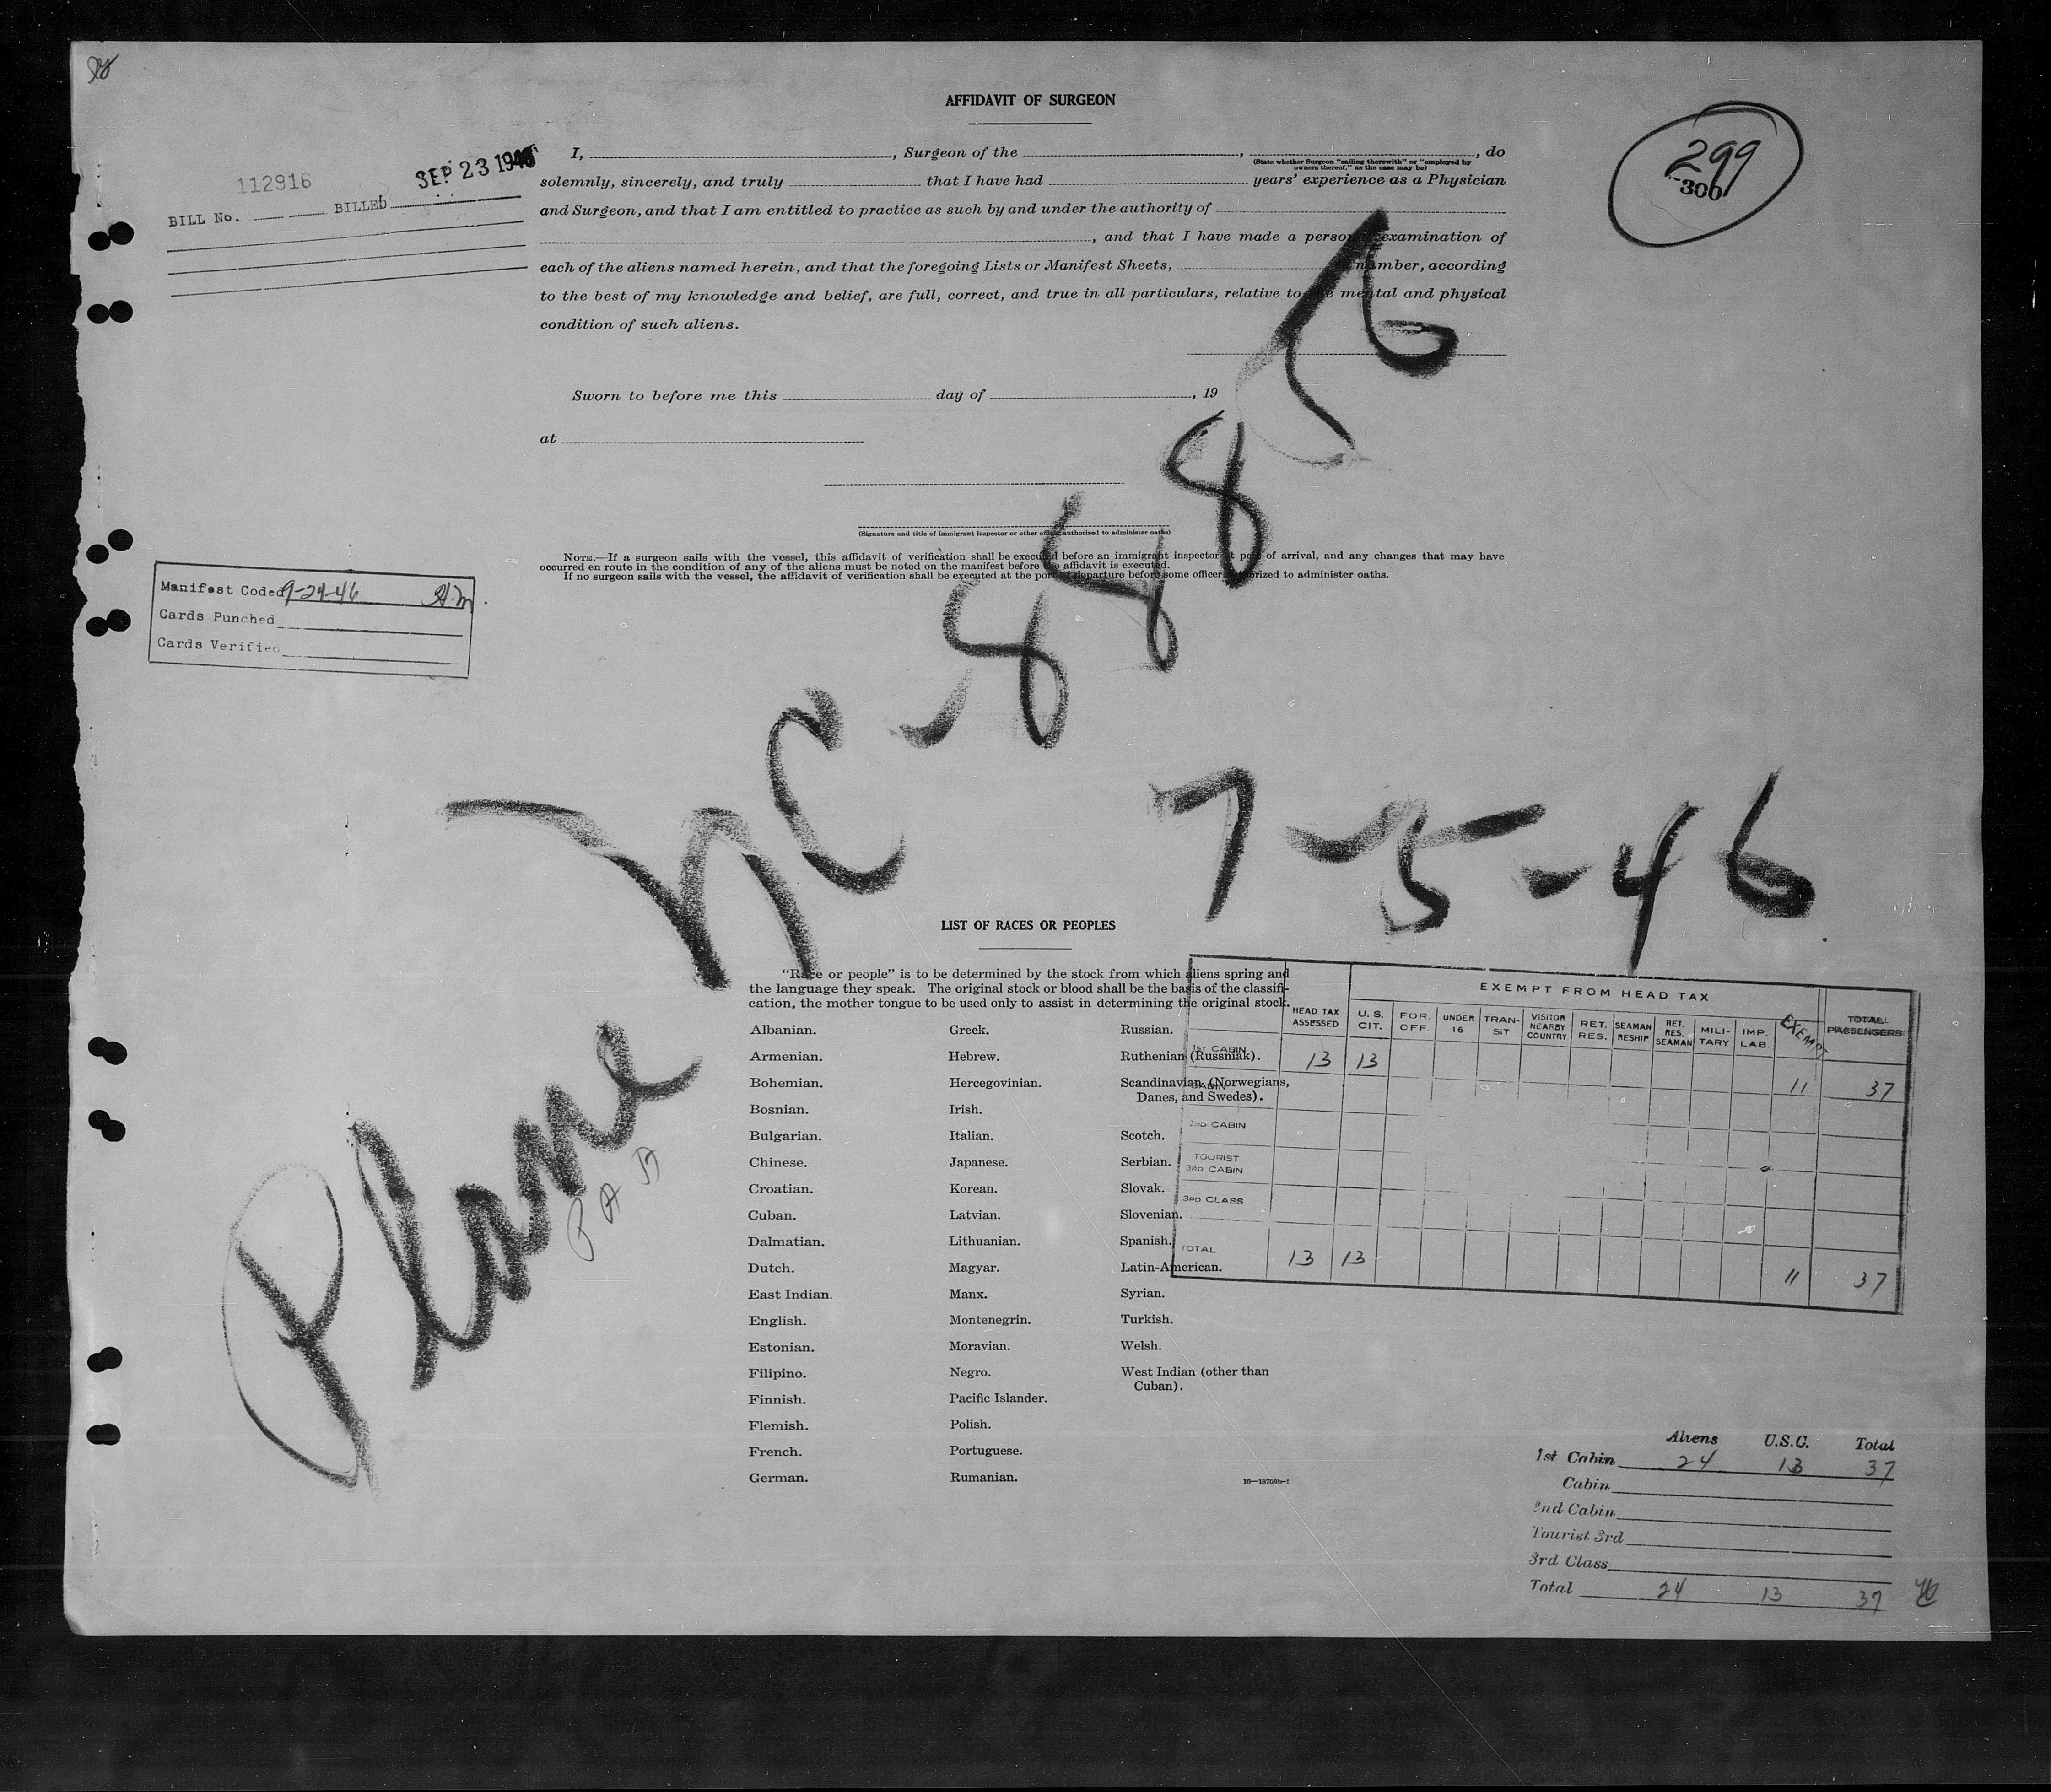 AFFIDAVIT OF SURGEON
299
-300
112916
SEP 23 1946
BILL No. BILLED
I, , Surgeon of the , , do
(State whether Surgeon "sailing therewith" or "employed by
owners thereof," as the case may be)
solemnly, sincerely, and truly that I have had years' experience as a Physician
and Surgeon, and that I am entitled to practice as such by and under the authority of
, and that I have made a personal examination of
each of the aliens named herein, and that the foregoing Lists or Manifest Sheets, number, according
to the best of my knowledge and belief, are full, correct, and true in all particulars, relative to the mental and physical
condition of such aliens.
Sworn to before me this day of , 19
at
(Signature and title of immigrant inspector or other officer authorized to administer oaths)
NOTE.—If a surgeon sails with the vessel, this affidavit of verification shall be executed before an immigrant inspector at port of arrival, and any changes that may have
occurred en route in the condition of any of the aliens must be noted on the manifest before the affidavit is executed.
If no surgeon sails with the vessel, the affidavit of verification shall be executed at the port of departure before some officer authorized to administer oaths.
Manifest Coded 9-24-46 H.M.
Cards Punched
Cards Verified
Plane NC-88856
PAA
7-5-46
LIST OF RACES OR PEOPLES
"Race or people" is to be determined by the stock from which aliens spring and
the language they speak. The original stock or blood shall be the basis of the classifi-
cation, the mother tongue to be used only to assist in determining the original stock.
Albanian.
Armenian.
Bohemian.
Bosnian.
Bulgarian.
Chinese.
Croatian.
Cuban.
Dalmatian.
Dutch.
East Indian.
English.
Estonian.
Filipino.
Finnish.
Flemish.
French.
German.
Greek.
Hebrew.
Hercegovinian.
Irish.
Italian.
Japanese.
Korean.
Latvian.
Lithuanian.
Magyar.
Manx.
Montenegrin.
Moravian.
Negro.
Pacific Islander.
Polish.
Portuguese.
Rumanian.
Russian.
Ruthenian (Russniak).
Scandinavian (Norwegians,
Danes, and Swedes).
Scotch.
Serbian.
Slovak.
Slovenian.
Spanish.
Latin-American.
Syrian.
Turkish.
Welsh.
West Indian (other than
Cuban).
16—18709b-1
EXEMPT FROM HEAD TAX
HEAD TAX ASSESSED U. S. CIT. FOR. OFF. UNDER 16 TRAN- SIT VISITOR NEARBY COUNTRY RET. RES. SEAMAN RESHIP RET. RES. SEAMAN MILI- TARY IMP. LAB. EXEMPT TOTAL PASSENGERS
1ST CABIN 13 13
CABIN 11 37
2ND CABIN
TOURIST
3RD CABIN
3RD CLASS
TOTAL 13 13 11 37
Aliens U.S.C. Total
1st Cabin 24 13 37
Cabin
2nd Cabin
Tourist 3rd
3rd Class
Total 24 13 37